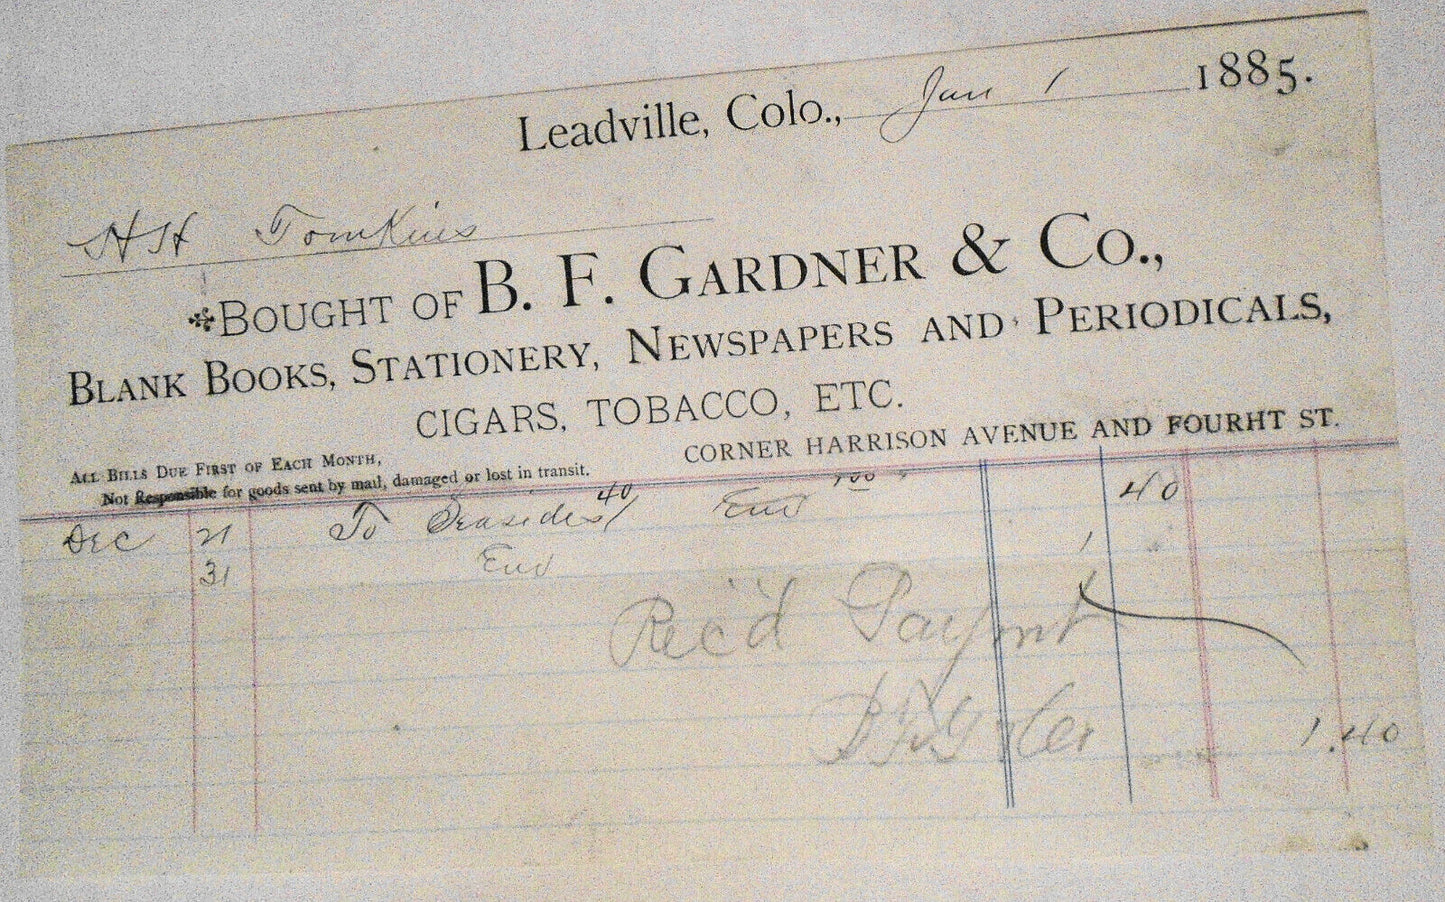 Leadville, Colo., Jan 1 1885.
H H Tomkins
BOUGHT OF B. F. GARDNER & CO.,
BLANK BOOKS, STATIONERY, NEWSPAPERS AND PERIODICALS,
CIGARS, TOBACCO, ETC.
CORNER HARRISON AVENUE AND FOURHT ST.
ALL BILLS DUE FIRST OF EACH MONTH,
Not Responsible for goods sent by mail, damaged or lost in transit.
Dec 21 To 40 40
31
Rec'd Payment
1.40